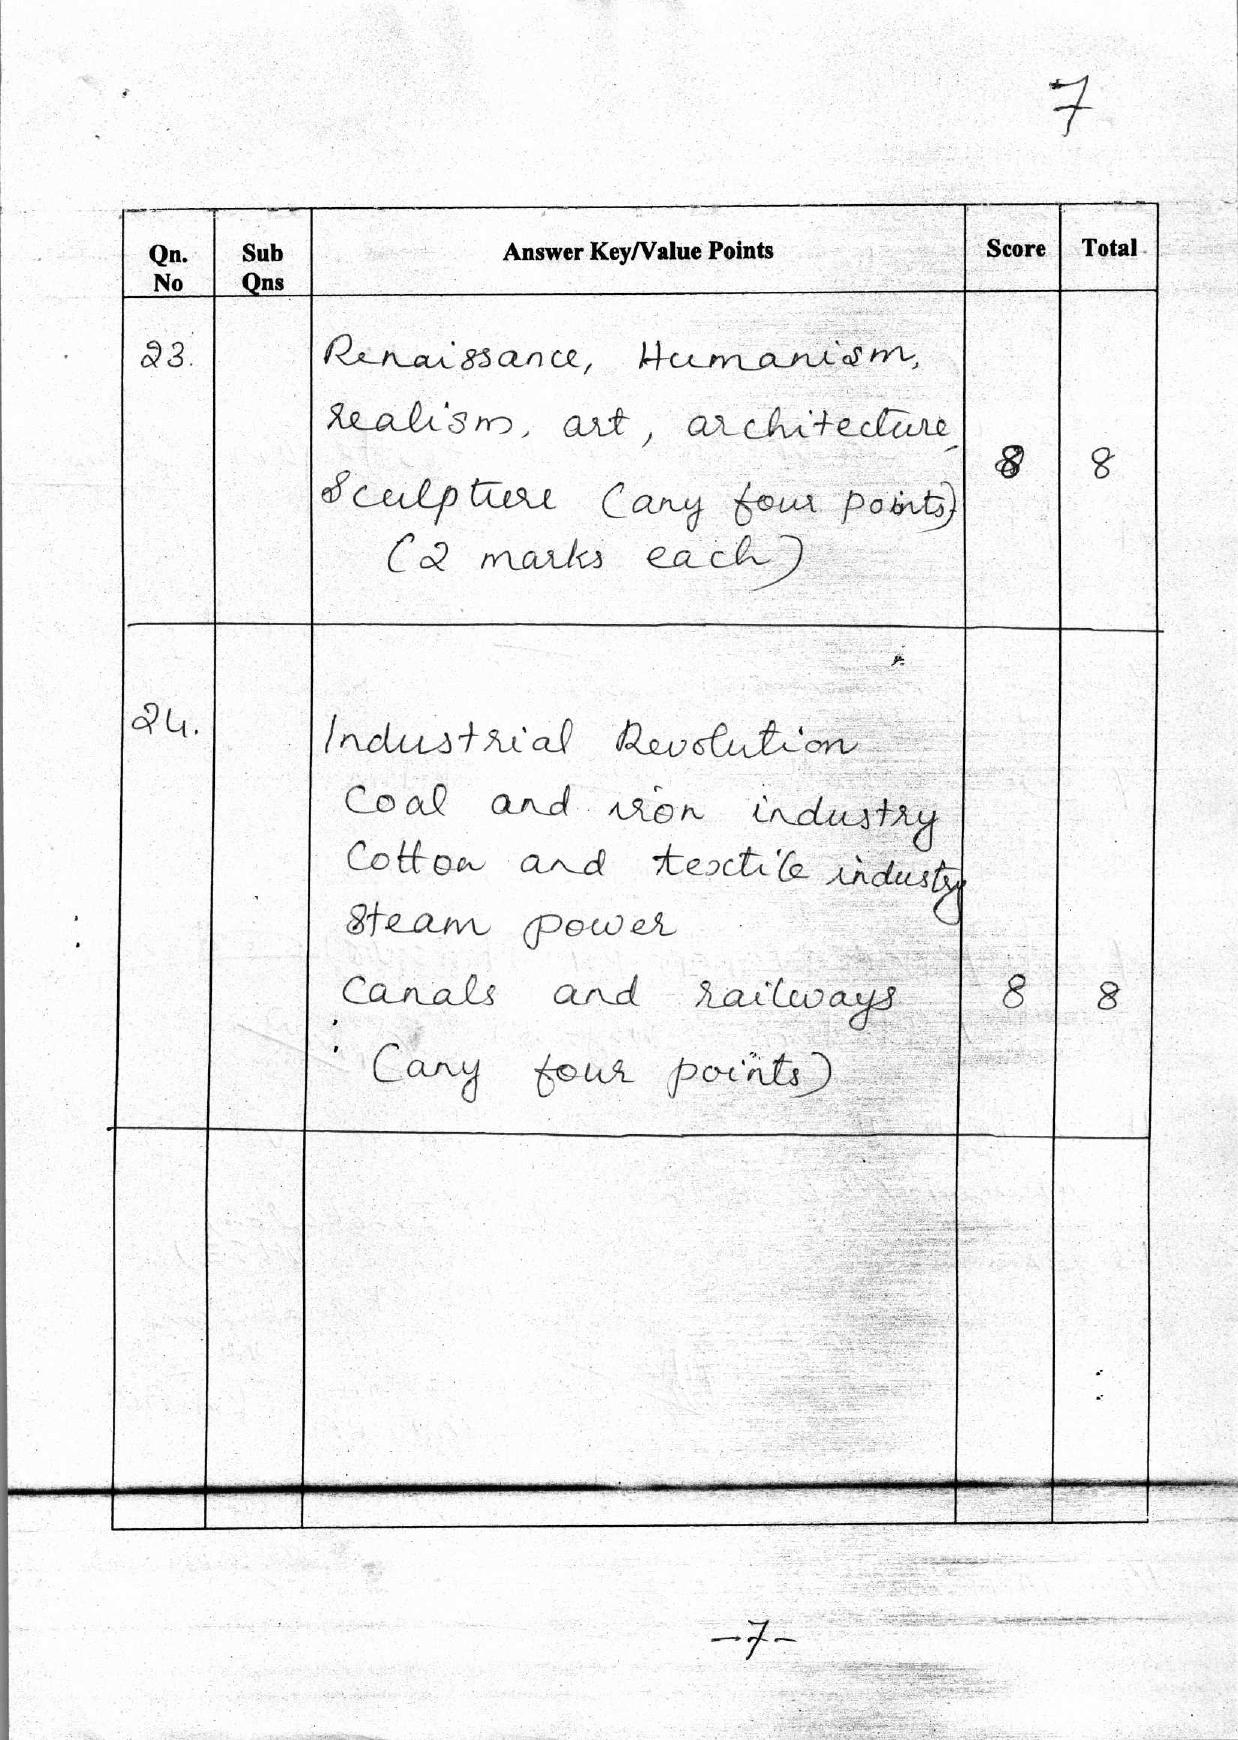 7
Qn. No Sub Qns Answer Key/Value Points Score Total
23. Renaissance, Humanism,
realism, art, architecture,
Sculpture (any four points) 8 8
(2 marks each)
24. Industrial Revolution
Coal and iron industry
Cotton and textile industry
Steam power
Canals and railways 8 8
(any four points)
-7-